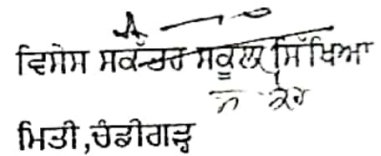 ਵਿਸੇਸ ਸਕੱਚਰ ਸਕੂਲ ਸਿੱਖਿਆ
ਮਿਤੀ,ਚੰਡੀਗੜ੍ਹ